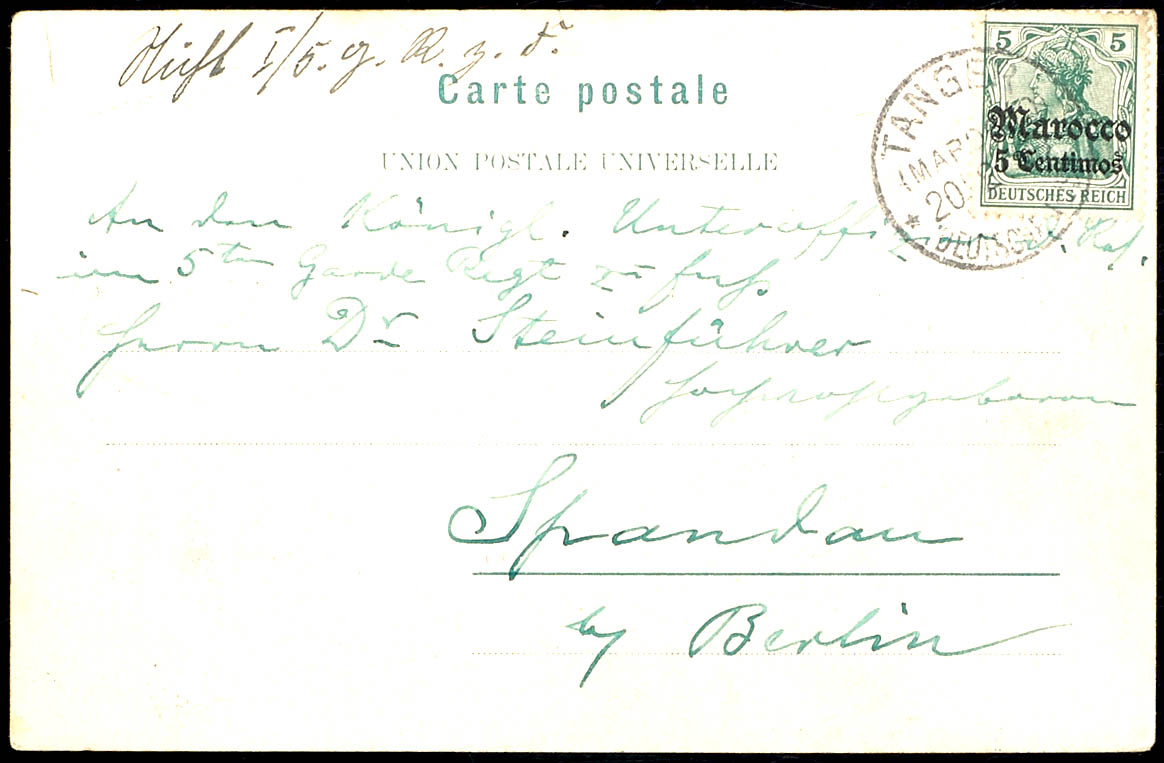 I/5. g. R. z. F.
Carte postale
UNION POSTALE UNIVERSELLE
5 5
Marocco
5 Centimos
DEUTSCHES REICH
TANGER
(MARO
20
An den Königl. Unteroffizier d. Res.
im 5ten Garde Regt zu Fuß.
Herrn Dr Steinführer
Hochwohlgeboren
Spandau
by Berlin